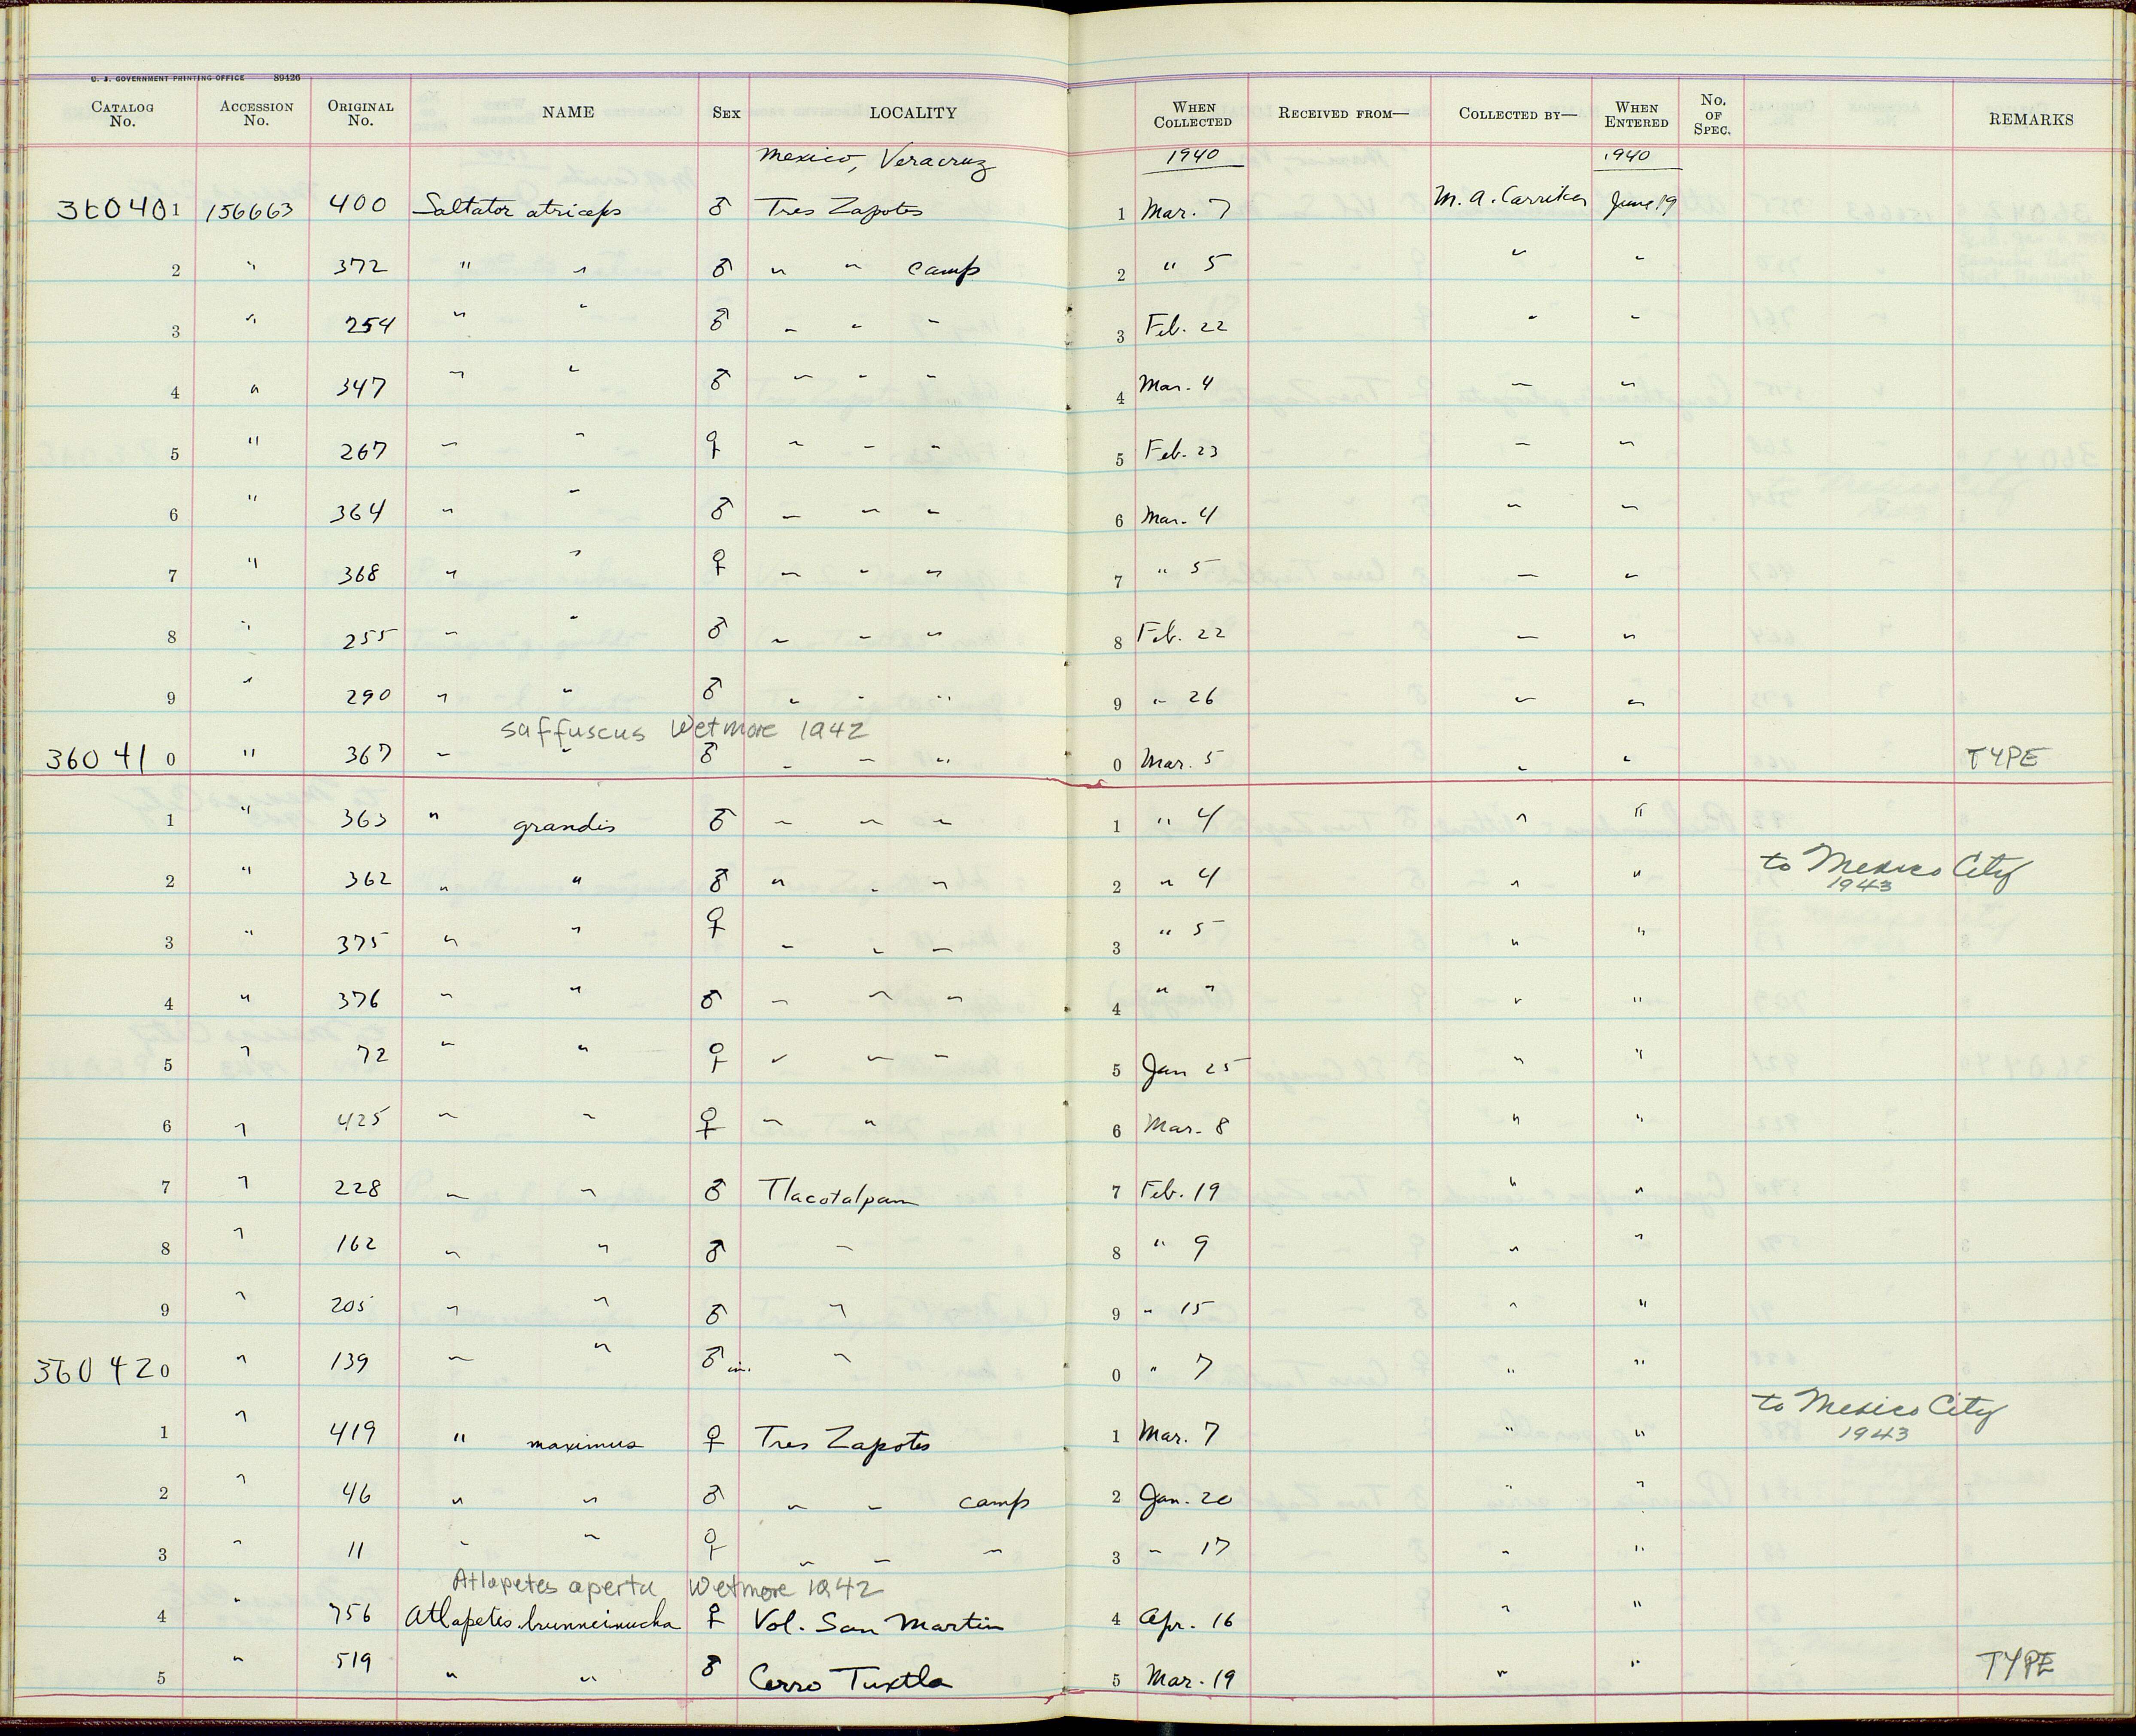 U. S. GOVERNMENT PRINTING OFFICE 89426
CATALOG No. ACCESSION No. ORIGINAL No. NAME SEX LOCALITY WHEN COLLECTED RECEIVED FROM— COLLECTED BY— WHEN ENTERED No. OF SPEC. REMARKS
Mexico, Veracruz 1940 1940
360401 156663 400 Saltator atriceps ♂ Tres Zapotes 1 Mar. 7 M. A. Carriker June 19
2 " 372 " " ♂ " " camp 2 " 5 " "
3 " 254 " " ♂ " " " 3 Feb. 22 " "
4 " 347 " " ♂ " " " 4 Mar. 4 " "
5 " 267 " " ♀ " " " 5 Feb. 23 " "
6 " 364 " " ♂ " " " 6 Mar. 4 " "
7 " 368 " " ♀ " " " 7 " 5 " "
8 " 255 " " ♂ " " " 8 Feb. 22 " "
9 " 290 " " ♂ " " " 9 " 26 " "
suffuscus Wetmore 1942
360410 " 367 " " ♂ " " " 0 Mar. 5 " " TYPE
1 " 363 " grandis ♂ " " " 1 " 4 " "
2 " 362 " " ♂ " " " 2 " 4 " " to Mexico City 1943
3 " 375 " " ♀ " " " 3 " 5 " "
4 " 376 " " ♂ " " " 4 " " " "
5 " 72 " " ♀ " " " 5 Jan 25 " "
6 " 425 " " ♀ " " 6 Mar. 8 " "
7 " 228 " " ♂ Tlacotalpam 7 Feb. 19 " "
8 " 162 " " ♂ " 8 " 9 " "
9 " 205 " " ♂ " 9 " 15 " "
360420 " 139 " " ♂ im. " 0 " 7 " "
1 " 419 " maximus ♀ Tres Zapotes 1 Mar. 7 " " to Mexico City 1943
2 " 46 " " ♂ " " camp 2 Jan. 20 " "
3 " 11 " " ♀ " " " 3 " 17 " "
Atlapetes aperta Wetmore 1942
4 " 756 Atlapetes brunneinucha ♀ Vol. San Martin 4 Apr. 16 " "
5 " 519 " " ♂ Cerro Tuxtla 5 Mar. 19 " " TYPE